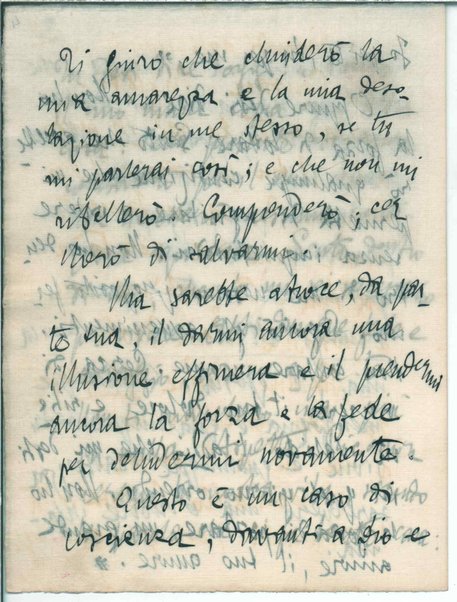 Ti giuro che chiuderò la
mia amarezza e la mia deso-
lazione in me stesso, se tu
mi parlerai così; e che non mi
ribellerò. Comprenderò; cer
cherò di salvarmi.
Ma sarebbe atroce, da par-
te tua, il darmi ancora una
illusione effimera e il prendermi
ancora la forza e la fede
per deludermi novamente.
Questo è un caso di
coscienza, davanti a dio e